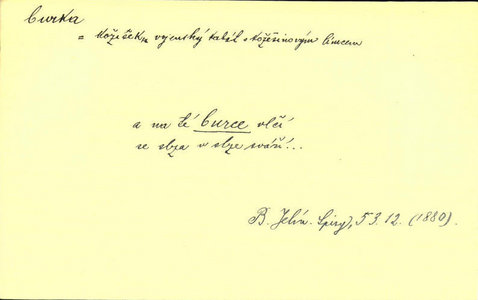 burka
= kožíšek, vojenský kabát s kožešinovým límcem
a na té burce vlčí
se slza v slze sváří...
B. Jelín. Spisy, 53.12. (1880).